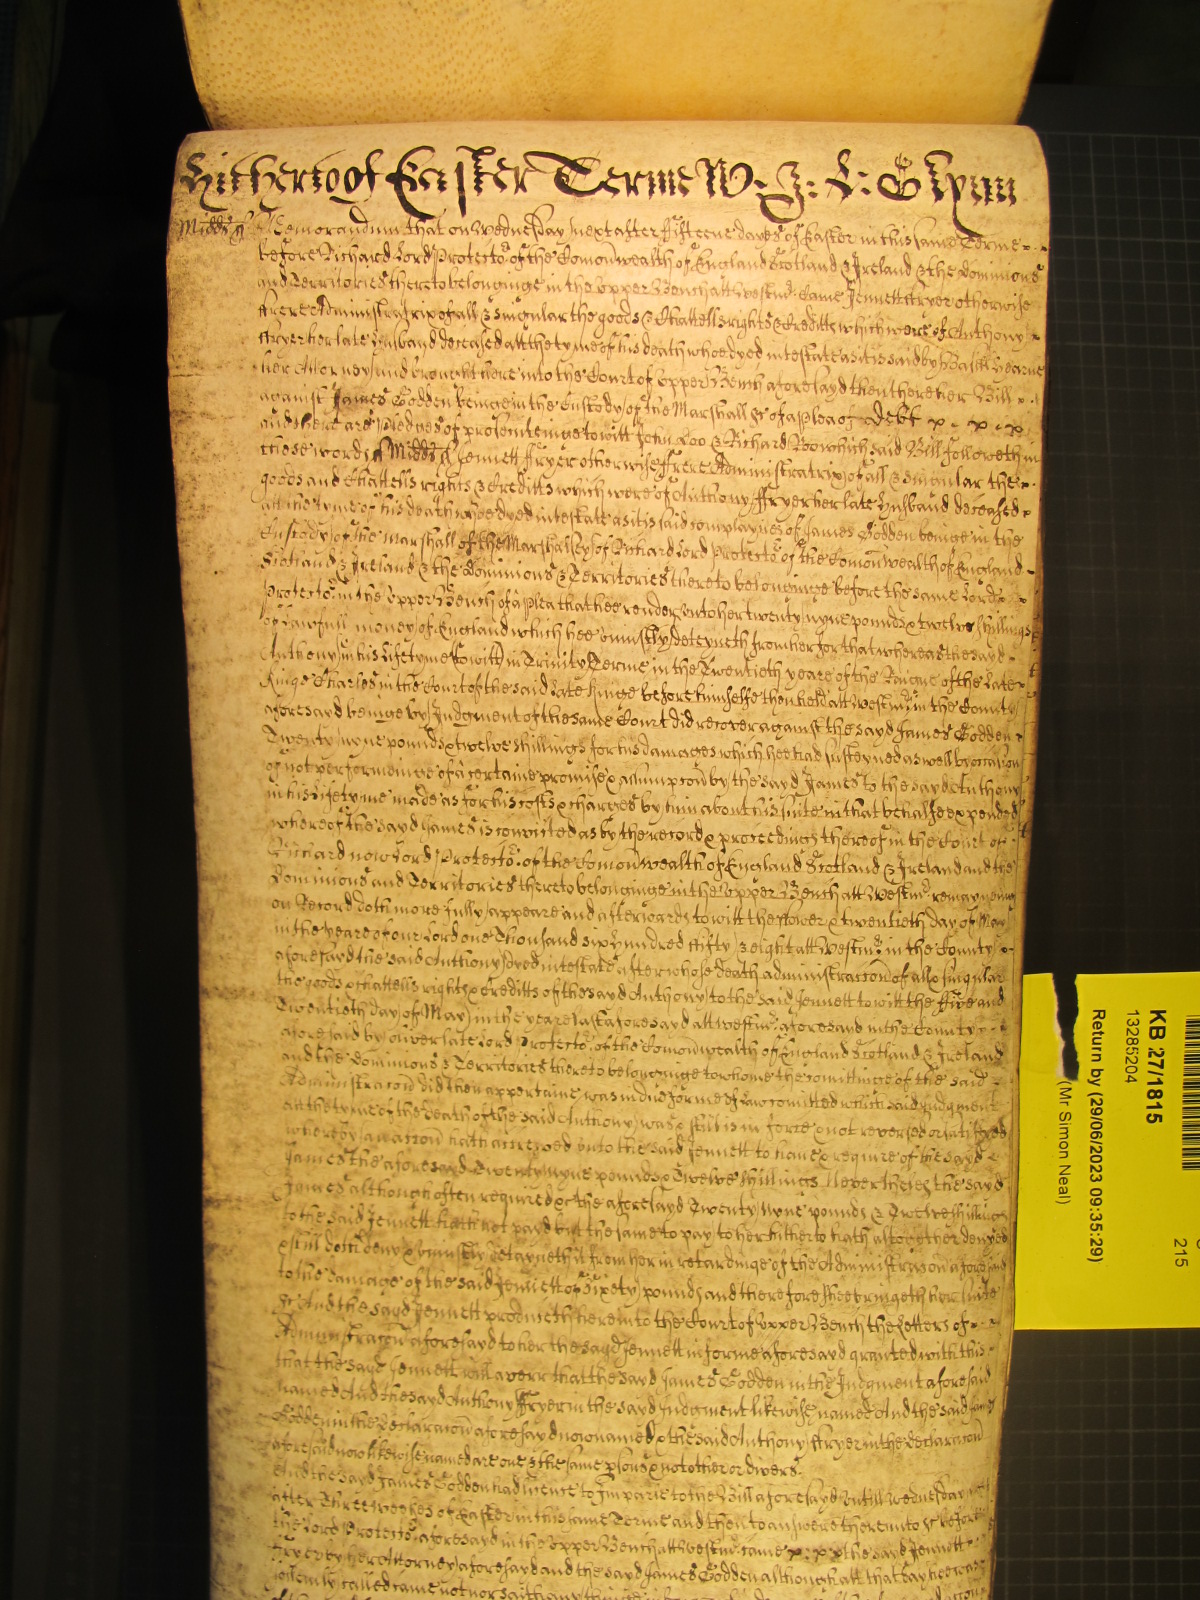 Hitherto of Easter Terme W: Z: L: Glynn
Midds ss Memorandum that on Wednesday next after fifteene dayes of Easter in this same Terme
before Richard Lord Protector of the Comonwealth of England Scotland & Ireland & the Dominions
and Territories thereto belonginge in the Upper Bench att Westmr: Came Jennett Fryer otherwise
Frere Administratrix of all & singular the goods & Chattells rights & Creditts which were of Anthony
Fryer her late husband deceased att the tyme of his death whoe dyed intestate as it is said by Basill Hearne
her Attorney and brought here into the Court of Upper Bench aforesayd then there her Bill
against James Godden beinge in the Custody of the Marshall &c of a plea of Debt
and there are pledges of prosecuteinge to witt John Doo & Richard Roo which said Bill followeth in
these words ss Midds ss Jennett Fryer otherwise Frere Administratrix of all & singular the
goods and Chattells rights & Creditts which were of Anthony Fryer her late husband deceased
att the tyme of his death whoe dyed intestate as it is said complaynes of James Godden beinge in the
Custody of the Marshall of the Marshalsey of Richard Lord Protector of the Comonwealth of England
Scotland & Ireland & the Dominions & Territories thereto belonginge before the same Lord
Protector in the Upper Bench of a plea that hee render unto her twenty nyne pounds & twelve shillings
of lawfull money of England which hee uniustly deteyneth from her for that whereas the sayd
Anthony in his lifetyme (to witt) in Trinity Terme in the Twentieth yeare of the Raigne of the late
Kinge Charles in the Court of the said late Kinge before himselfe then held att Westmr: in the County
aforesayd beinge by Judgment of the same Court did recover against the sayd James Godden
Twenty nyne pounds & twelve shillings for his damages which hee had susteyned as well by occasion
of not performeinge of a certaine promise & assumpcon by the sayd James to the sayd Anthony
in his lifetyme made as for his costs & charges by him about his suite in that behalfe expended
whereof the sayd James is convicted as by the record & proceedings thereof in the Court of
Richard now Lord Protector of the Comonwealth of England Scotland & Ireland and the
Dominions and Territories thereto belonginge in the Upper Bench att Westmr: remayneinge
on Record doth more fully appeare and afterwards to witt the fower & twentieth day of May
in the yeare of our Lord one Thousand six hundred fifty & eight att Westmr: in the County
aforesayd the said Anthony dyed intestate after whose death administracon of all & singular
the goods & chattells rights & creditts of the sayd Anthony to the said Jennett to witt the Five and
Twentieth day of May in the yeare last aforesayd att Westmr: aforesayd in the County
aforesaid by Oliver late Lord Protector of the Comonwealth of England Scotland & Ireland
and the Dominions & Territories thereto belonginge to whome the comittinge of the said
Administracon did then appertaine was in due forme of law comitted which said Judgment
att the tyme of the death of the said Anthony was & still is in force & not reversed or satisfyed
whereby an accon hath accrewed unto the said Jennett to have & require of the sayd
James the aforesayd Twenty nyne pounds & Twelve shillings Neverthelesse the sayd
James although often required &c the aforesayd Twenty Nyne pounds & Twelve shillings
to the said Jennett hath not payd but the same to pay to her hitherto hath altogether denyed
& still doth deny & uniustly detayneth it from her in retardinge of the Administracon aforesaid
to the damage of the said Jennett of Sixety pounds and therefore shee bringeth her suite
&c And the sayd Jennett produceth here into the Court of Upper Bench the letters of
Administracon aforesayd to her the sayd Jennett in forme aforesayd granted with this
that the sayd Jennett will averr that the sayd James Godden in the Judgment aforesaid
named And the sayd Anthony Fryer in the sayd Judgment likewise named And the said James
Godden in the Declaracon aforesayd now named & the said Anthony Fryer in the Declaracon
aforesaid now likewise named are one & the same persons & not other or divers.
And the sayd James Godden had licence to Imparle to the Bill aforesayd untill Wednesday next
after Three weekes of Easter in this same Terme and then to answere thereunto &c before
the Lord Protector aforesayd in the Upper Bench att Westmr: came the sayd Jennett
Fryer by her Attorney aforesayd and the sayd James Godden although att that day hee was
solemly called came not nor saith any thinge
KB 27/1815
13285204
Return by (29/06/2023 09:35:29)
(Mr Simon Neal)
215